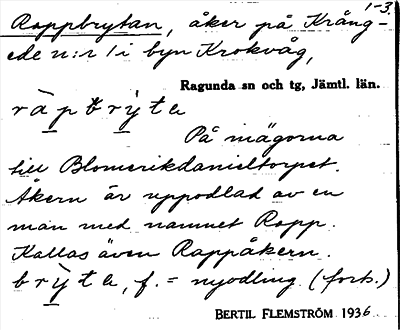 1-3.
Rappbrytan, åker på Krång-
ede n:r 1 i byn Krokvåg,
Ragunda sn och tg, Jämtl. län.
ràpbrỳta
På mägorna
till Blomerikdanieltorpet.
Åkern är uppodlad av en
man med namnet Rapp.
Kallas även Rappåkern.
brỳta, f. = nyodling (forts.)
BERTIL FLEMSTRÖM 1936